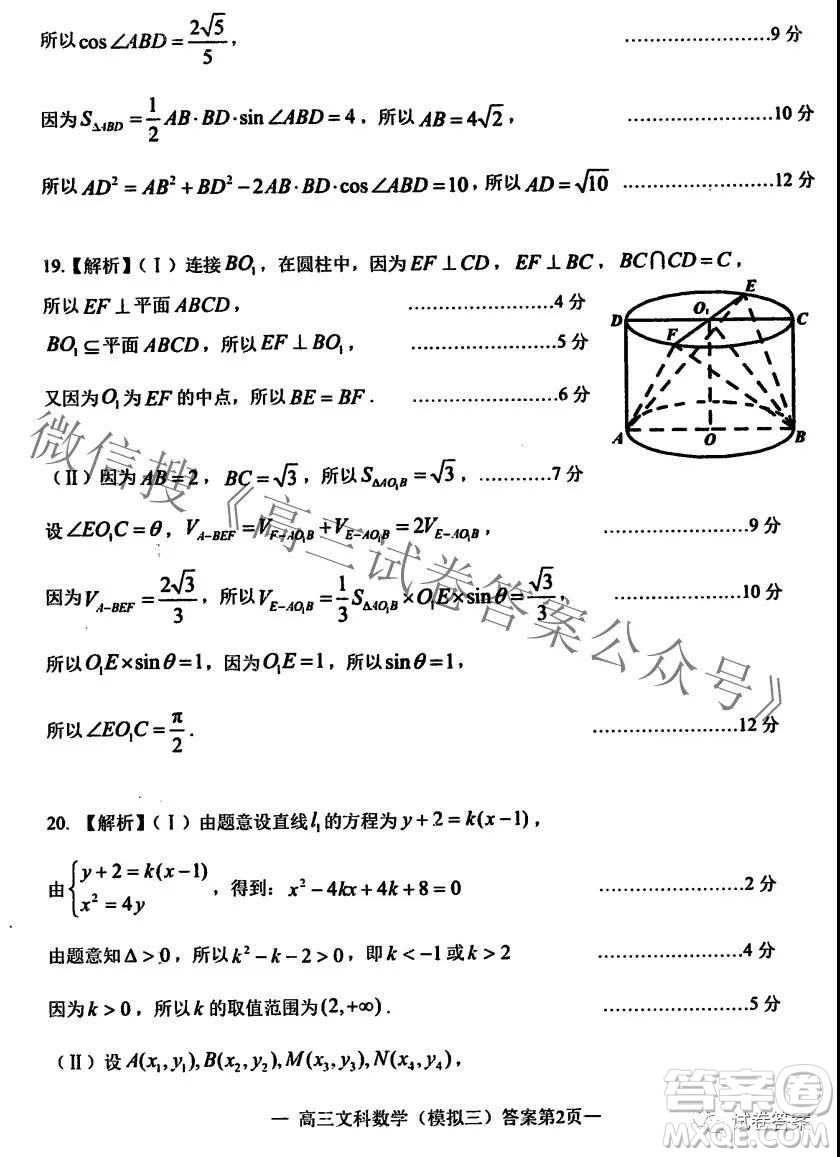 所以cos∠ABD=2√5/5，……………………9分
因为S△ABD=1/2 AB·BD·sin∠ABD=4，所以AB=4√2，……………………10分
所以AD²=AB²+BD²-2AB·BD·cos∠ABD=10，所以AD=√10 ……………………12分
19.【解析】(Ⅰ)连接BO₁，在圆柱中，因为EF⊥CD，EF⊥BC，BC∩CD=C，
所以EF⊥平面ABCD，……………………4分
BO₁⊆平面ABCD，所以EF⊥BO₁，……………………5分
又因为O₁为EF的中点，所以BE=BF．……………………6分
D O₁ E C F A O B
(Ⅱ)因为AB=2，BC=√3，所以S△AO₁B=√3，…………7分
设∠EO₁C=θ，V_{A-BEF}=V_{F-AO₁B}+V_{E-AO₁B}=2V_{E-AO₁B}，……………………9分
因为V_{A-BEF}=2√3/3，所以V_{E-AO₁B}=1/3 S△AO₁B×O₁E×sinθ=√3/3，……………………10分
所以O₁E×sinθ=1，因为O₁E=1，所以sinθ=1，
所以∠EO₁C=π/2．……………………12分
20.【解析】(Ⅰ)由题意设直线l₁的方程为y+2=k(x-1)，
由{y+2=k(x-1) x²=4y，得到：x²-4kx+4k+8=0 ……………………2分
由题意知Δ>0，所以k²-k-2>0，即k<-1或k>2 ……………………4分
因为k>0，所以k的取值范围为(2,+∞)．……………………5分
(Ⅱ)设A(x₁,y₁),B(x₂,y₂),M(x₃,y₃),N(x₄,y₄)，
— 高三文科数学（模拟三）答案第2页—
微信搜《高三试卷答案公众号》
试卷答案
答案圈
MXQE.COM